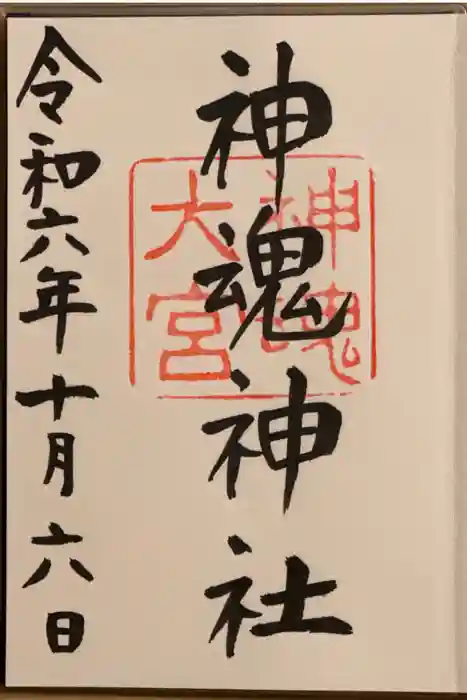 神魂神社
神魂
大宮
令和六年十月六日